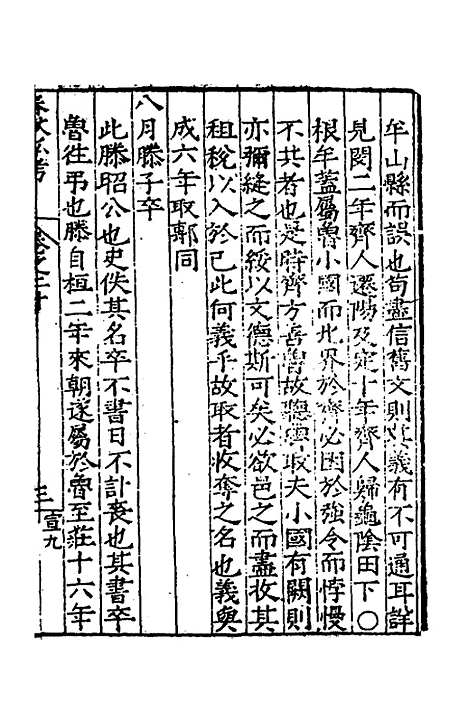 牟山縣而誤也苟盡信舊文則其義有不可通耳詳
見閔二年齊人遷陽及定十年齊人歸龜陰田下〇
根牟蓋屬魯小國而北界於齊必困於強令而悖慢
不共者也是時齊方善魯故聽魯取夫小國有闕則
亦彌縫之而綏以文德斯可矣必欲邑之而盡收其
租稅以入於己此何義乎故取者收奪之名也義與
成六年取鄟同
八月滕子卒
此滕昭公也史佚其名卒不書日不計喪也其書卒
魯往弔也滕自桓二年來朝遂屬於魯至莊十六年
三 宣九